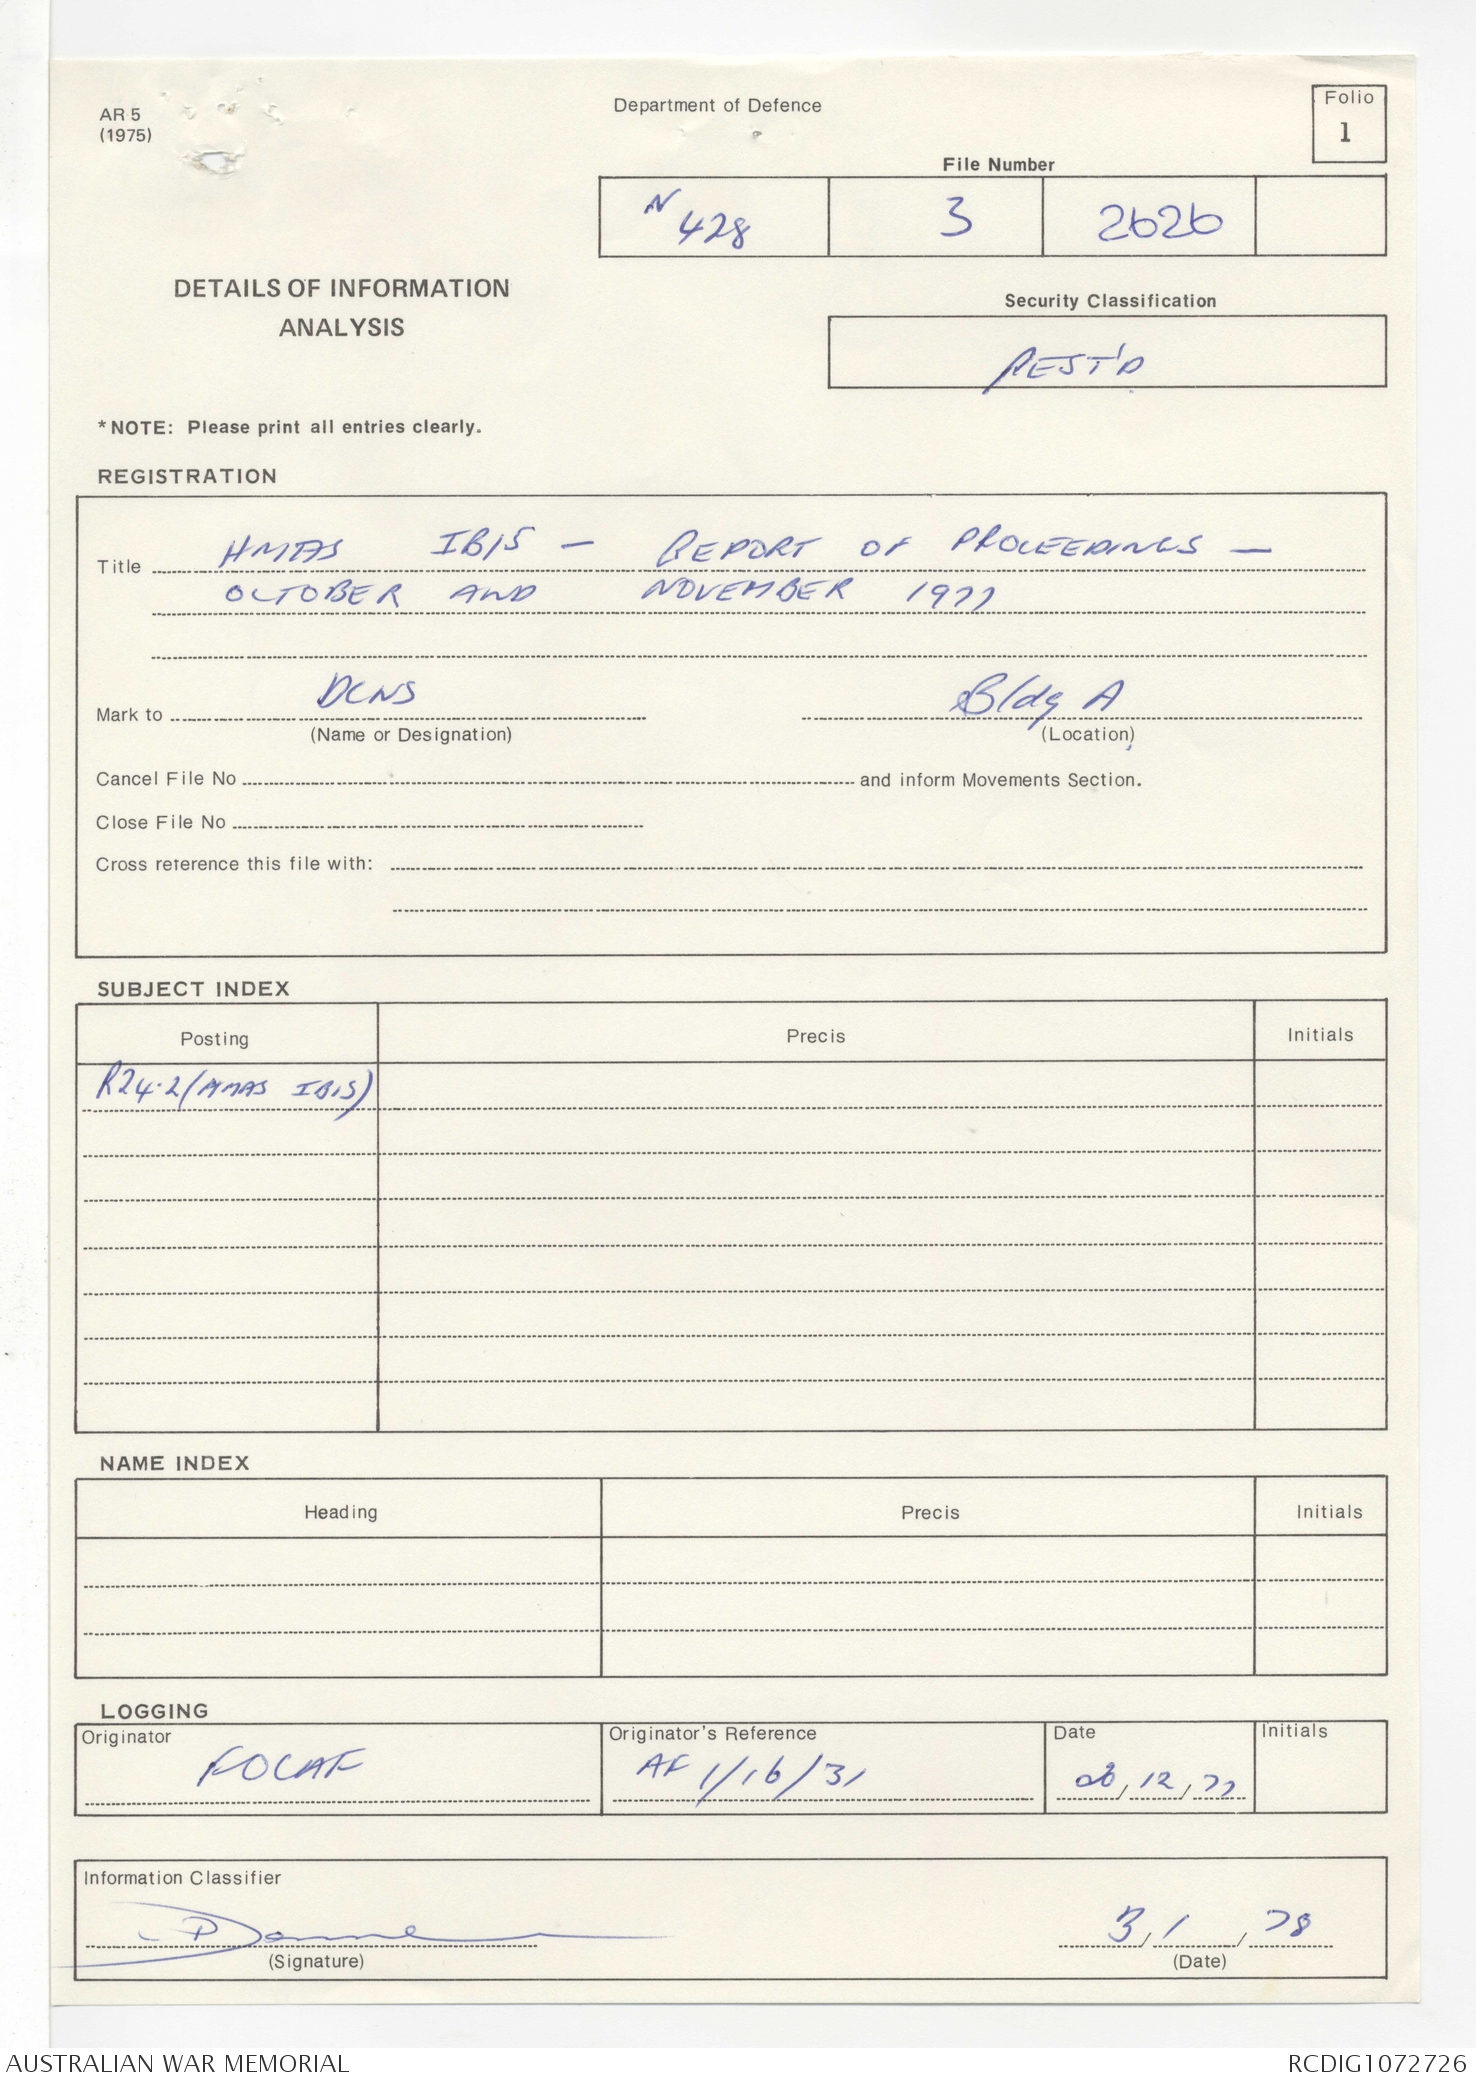 AR 5
(1975)
Department of Defence
Folio
1
File Number
N 428 3 2626
DETAILS OF INFORMATION
ANALYSIS
Security Classification
REST'D
*NOTE: Please print all entries clearly.
REGISTRATION
Title HMAS IBIS — REPORT OF PROCEEDINGS —
OCTOBER AND NOVEMBER 1977
Mark to DCNS Bldg A
(Name or Designation) (Location)
Cancel File No and inform Movements Section.
Close File No
Cross reference this file with:
SUBJECT INDEX
Posting Precis Initials
R24.2 (HMAS IBIS)
NAME INDEX
Heading Precis Initials
LOGGING
Originator Originator's Reference Date Initials
FOCAF AF 1/16/31 /12/77
Information Classifier
3/1/78
(Signature) (Date)
AUSTRALIAN WAR MEMORIAL RCDIG1072726